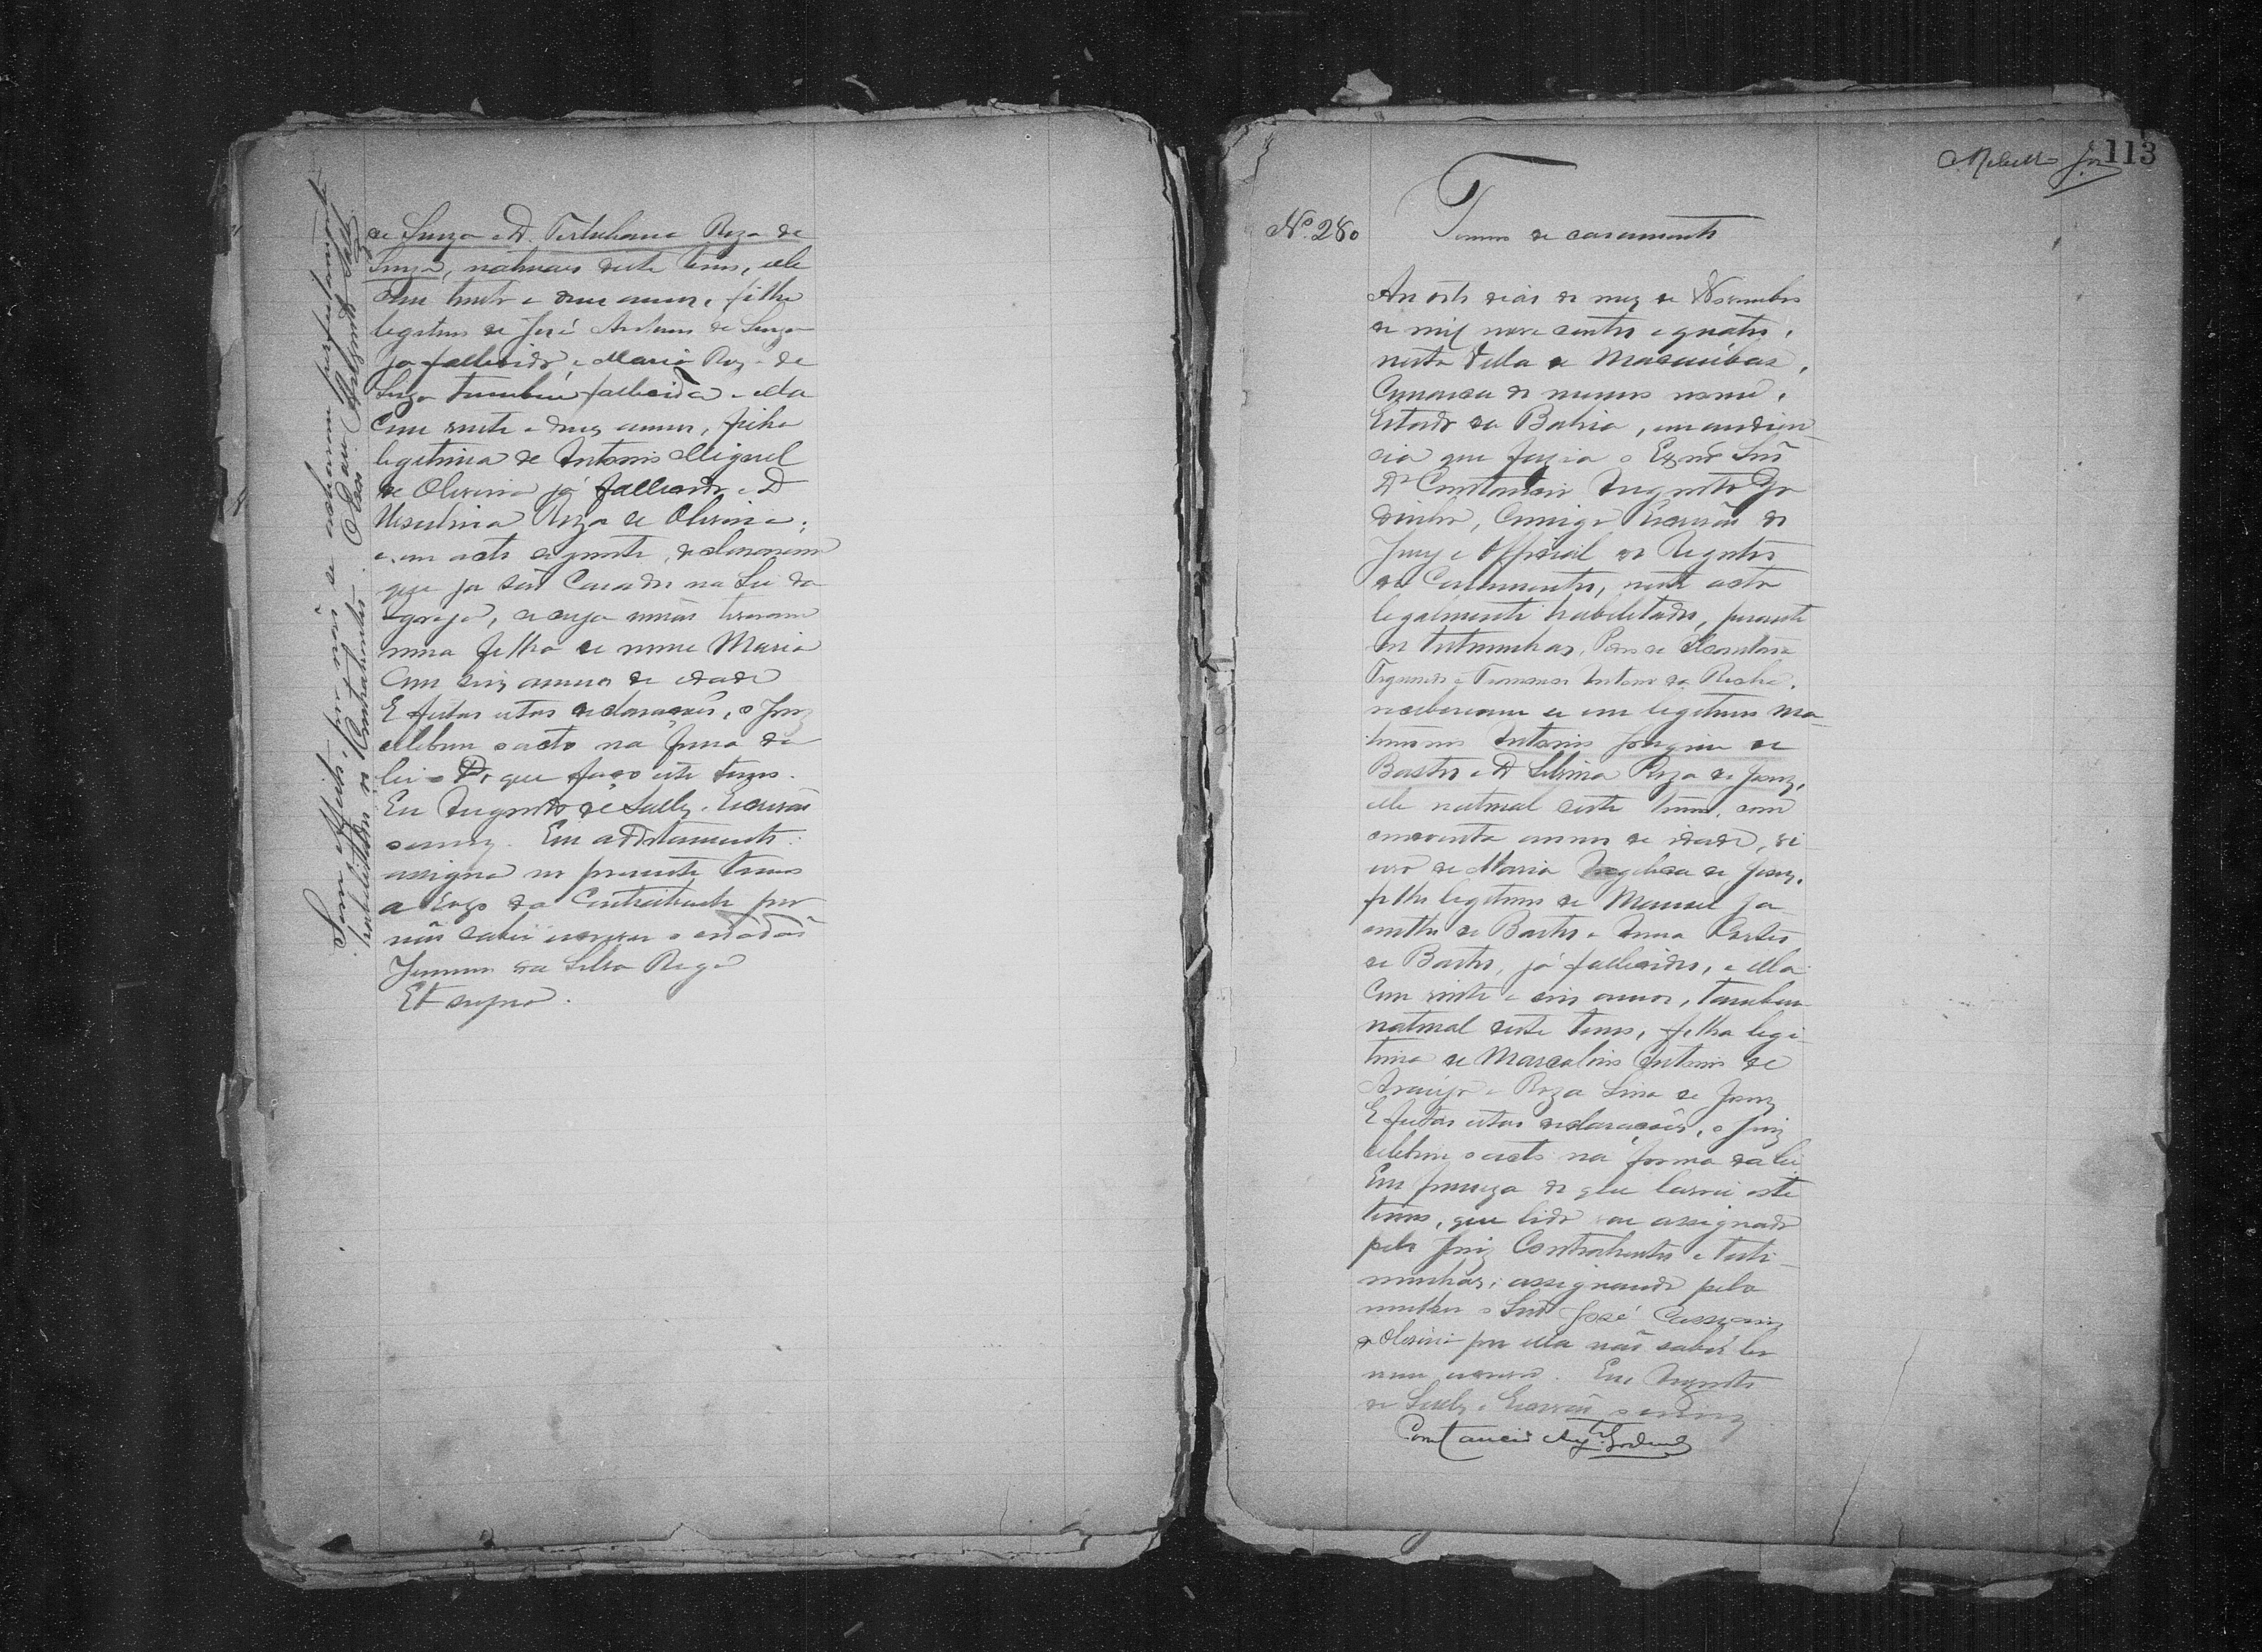 de Souza e D. Tertuliana Roza de
Souza, naturaes deste termo, elle
com trinta e annos, filho
legitimo de José Antonio de Souza
já fallecido, e Maria Roza de
Souza tambem fallecida e ella
com vinte e dous annos, filha
legitima de Antonio Miguel
de Oliveira já fallecido e D
Roza de Oliveira;
e em acto seguinte, declararam
que já são Casados na Lei da
Igreja, de cuja união tiveram
uma filha de nome Maria
com seis annos de edade
E feitas estas declarações, o Juiz
celebrou o acto na forma da
lei. Do que faço este termo.
Eu Augusto de Salles, Escrivão
o escrevy. Em additamento:
assigna no presente termo
a rogo da Contrahente por
não saber escrever o cidadão
da Silva Rego
Et supra.
Sem effeito, por não se acharem perfeitamente
habilitados os Contrahentes. Augusto Salles
113
Nº. 280
Termo de casamento
Aos oito dias do mez de Novembro
de mil nove centos e quatro,
nesta Villa de Macaúbas,
Comarca do mesmo nome,
Estado da Bahia, em audien
cia que fazia o Exmº Snr
Dr Constancio Augusto Go
dinho, Comigo Escrivão do
Jury e Official do Registro
de Casamentos, neste acto
legalmente habilitados, perante
as testemunhas, Pedro de Alcantara
Figueredo e Antonio da Rocha,
receberam se em legitimo ma
trimonio Antonio Joaquim de
Bastos e D Silvina Roza de Jesuz,
elle natural deste termo, com
cincoenta annos de idade, vi
uvo de Maria Angelica de Jesuz,
filho legitimo de Manuel Ja
cintho de Bastos e Anna
de Bastos, já fallecidos, e ella
com vinte e seis annos, tambem
natural deste termo, filha legi
tima de Marcolino Antonio de
Araújo e Roza Lina de Jesuz
E feitas estas declarações, o Juiz
celebrou o acto na forma da lei
Em firmeza do que lavrei este
termo, que lido vae assignado
pelo Juiz Contrahentes e teste
munhas; assignando pela
mulher o Snr José
de Oliveira por ella não saber ler
nem escrever. Eu, Augusto
de Salles, Escrivão o escrevy
Constancio Augto Godinho